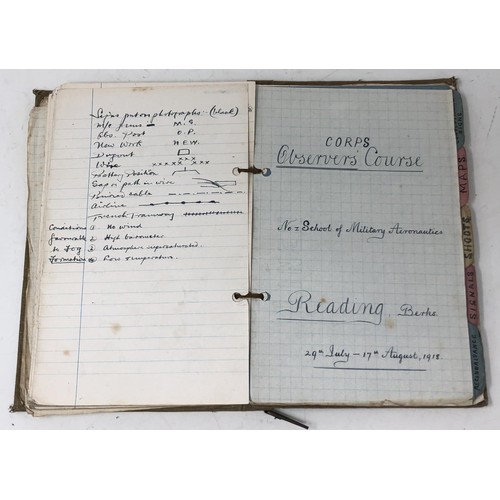 Signs put on photographs - (black)
M/c guns M.G.
Obs. Post O.P.
New Work NEW.
Dugout
Wire xxxxxxxxx
Battery position
Gap or path in wire
Buried cable
Airline
Trench Tramway
Conditions ① No wind
favourable ② High barometer
to Fog ③ Atmosphere supersaturated
Formation ④ Low temperature.
CORPS
Observers Course
No 1 School of Military Aeronautics
Reading, Berks.
29th July - 17th August, 1918
MAPS
SHOOTS
SIGNALS